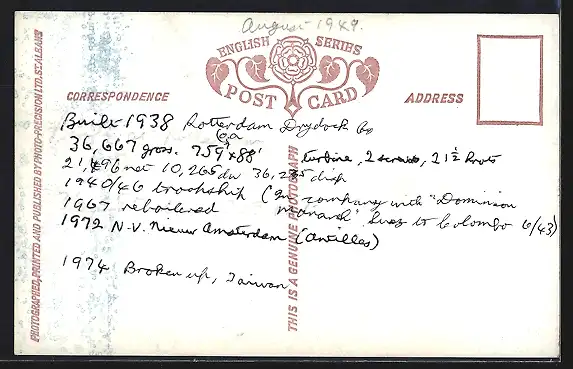 August 1949.
ENGLISH SERIES
POST CARD
CORRESPONDENCE
ADDRESS
Built 1938 Rotterdam Drydock Co
36,667 gross. 759' x 88' turbine, 2 screws, 21½ knots
21,496 net 10,265 dw 36,235 disp
1940/46 troopship (in company with "Dominion
Monarch" Suez to Colombo 6/43)
1967 reboilered
1972 N.V. Nieuw Amsterdam (Antilles)
1974 Broken up, Taiwan
PHOTOGRAPHED, PRINTED AND PUBLISHED BY PHOTO-PRECISION LTD. ST. ALBANS
THIS IS A GENUINE PHOTOGRAPH